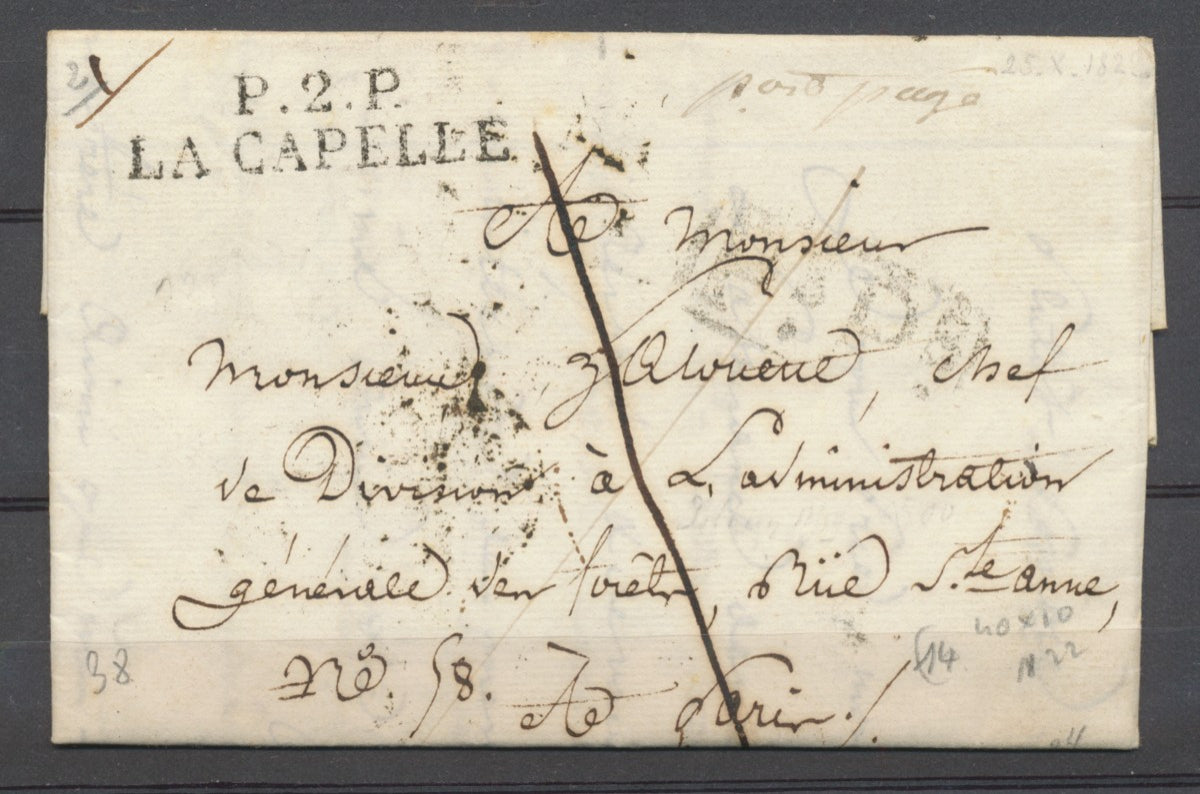 P.2.P.
LA CAPELLE
port payé
25.X.182
A Monsieur
Monsieur chef
de Division à L'administration
générale des forêts, Rüe Ste anne,
No. 58.
A Paris.
38
40 x 10
N 22